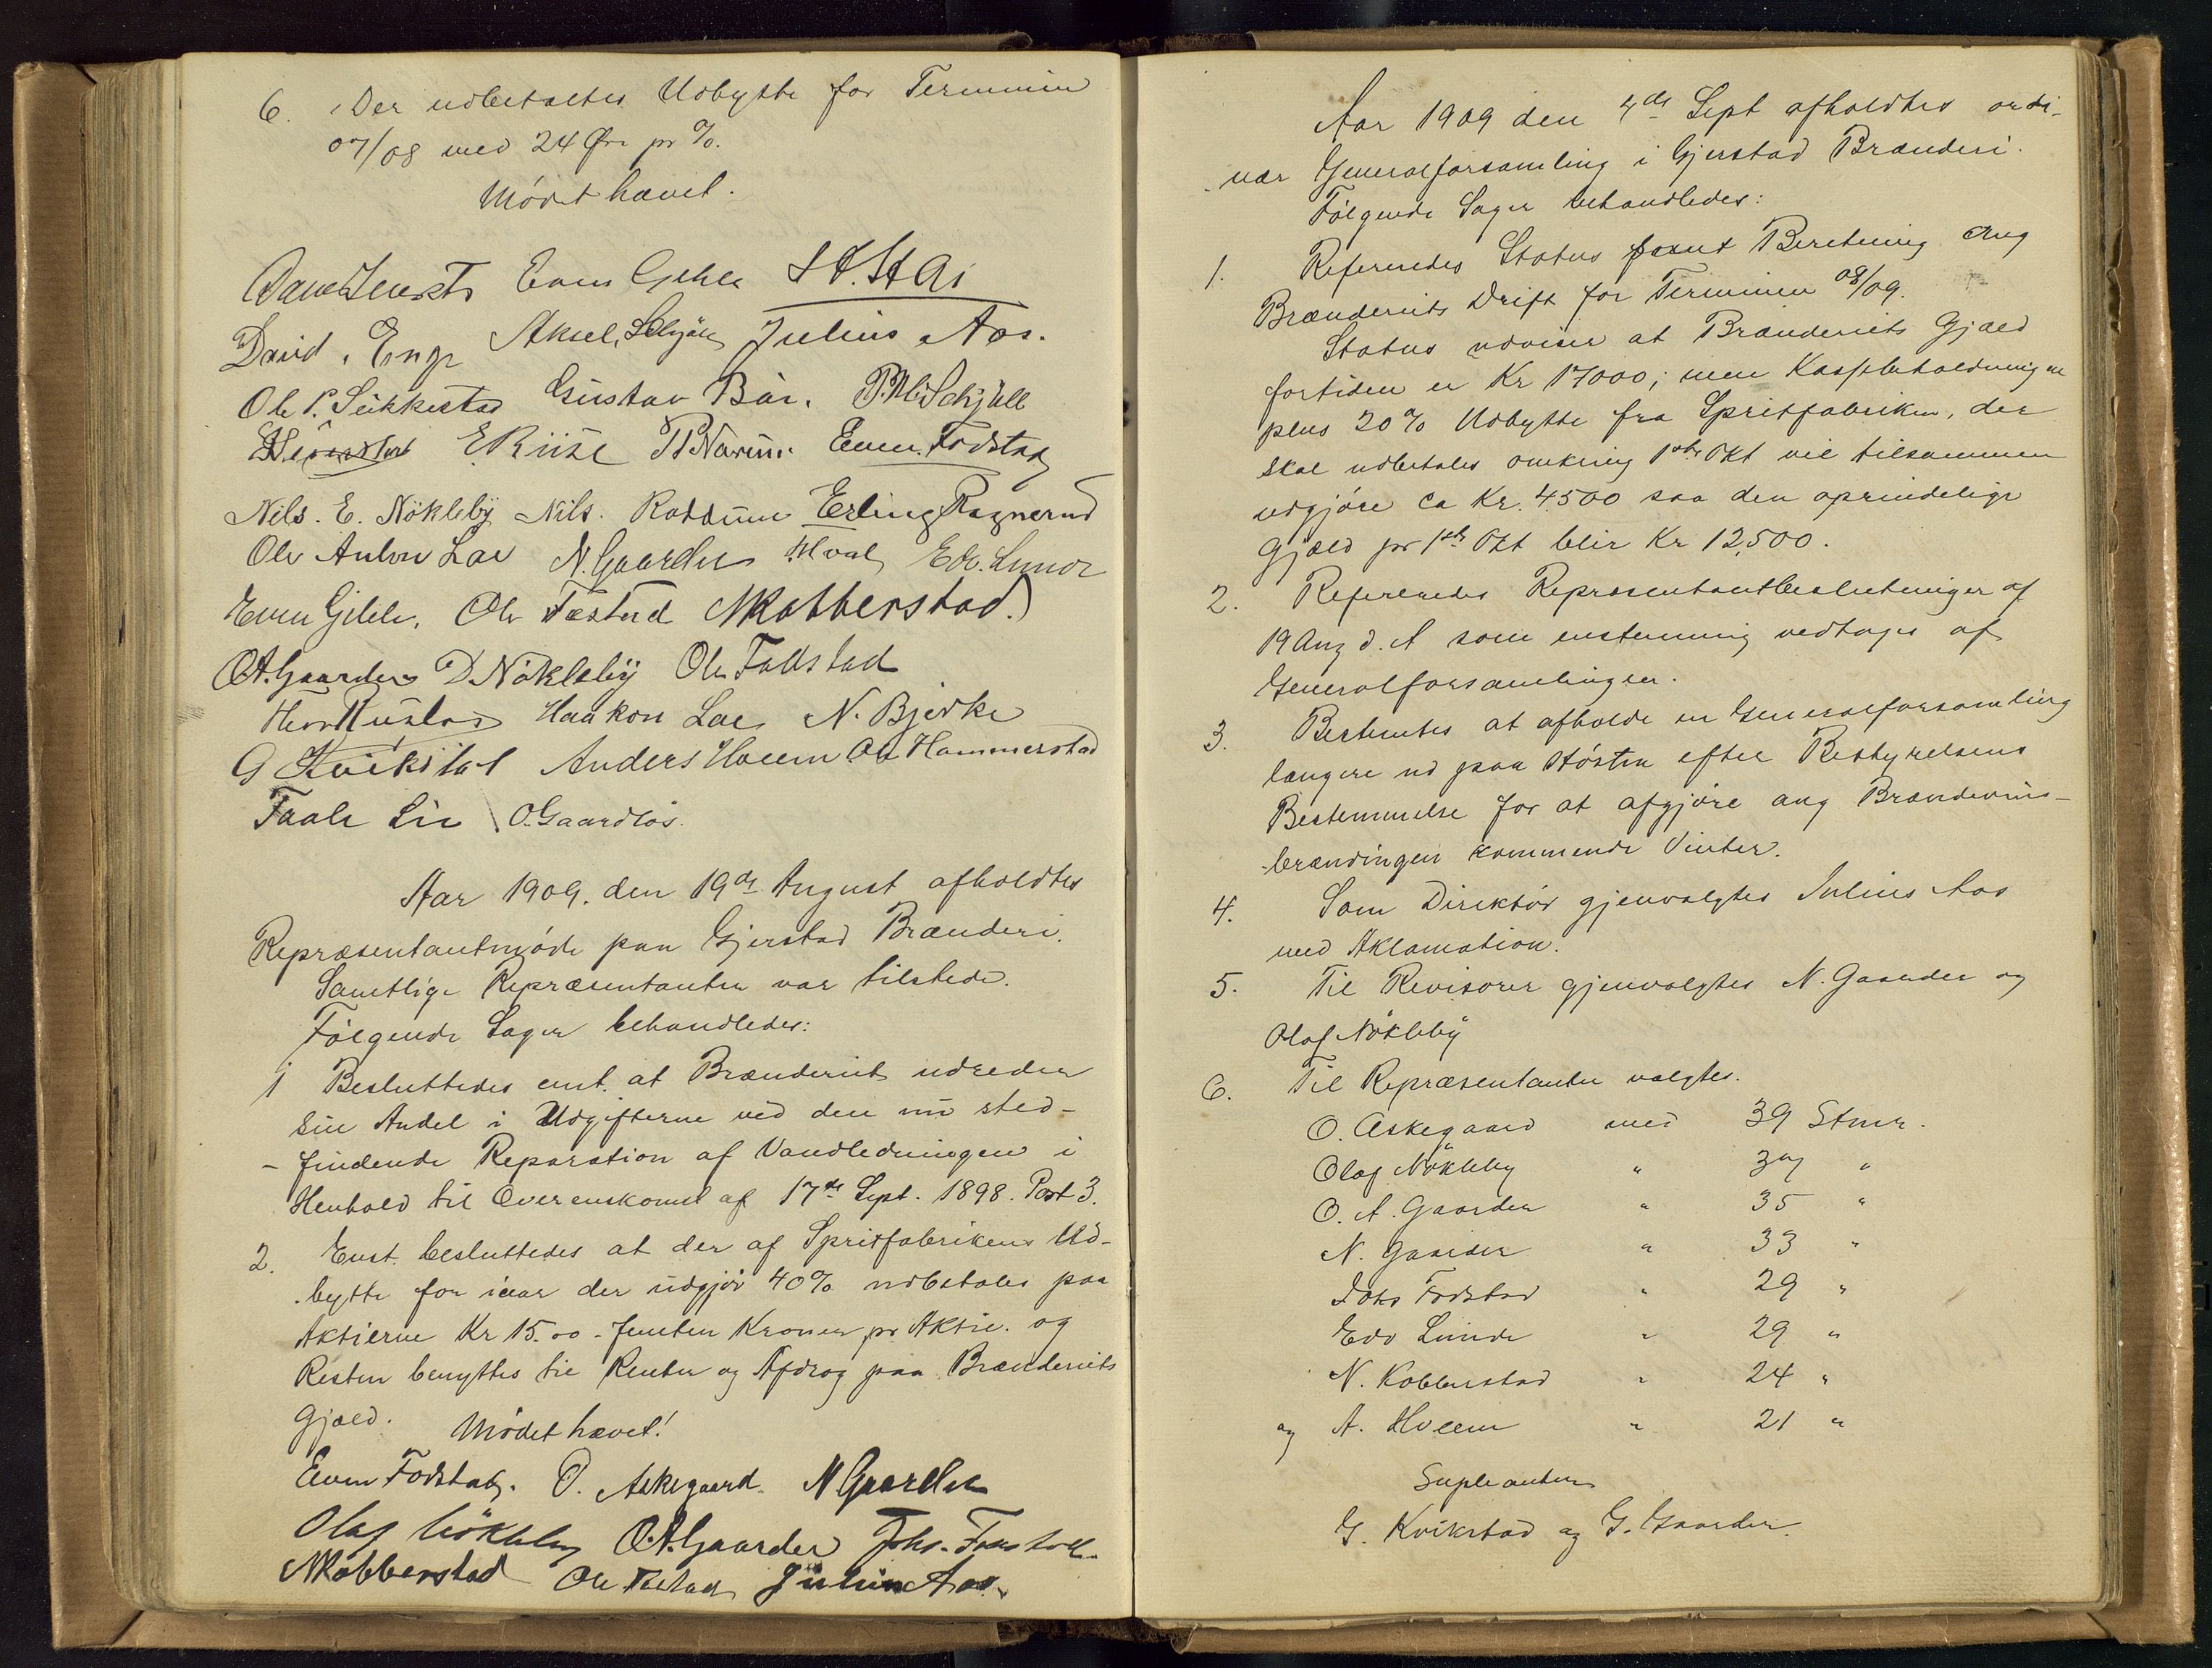 6. Der udbetaltes Udbytte for Terminen
07/08 med 24 Øre pr %.
Mödet hævet.
Even Gihle H. Stai
David. Enge Aksel. Julius Aas.
Ole P. Sukkestad Gustav Bär. P.M. Schjöll
E Riise Even. Fodstad
Nils. E. Nökleby Nils. Roddum Erling Ragnerud
Ole Anton Lae N. Gaarder Hval Edv. Lunde
Even Gihle, Ole Fæstad N Kobberstad.
O.A. Gaarder D. Nökleby Ole Fallstad
Haakon Lae N. Bjerke
G Kvikstad Anders Hveem Ole Hammerstad
Taale Lie O. Gaardlös.
Aar 1909. den 19de August afholdtes
Repræsentantmöde paa Gjerstad Brænderi.
Samtlige Repræsentanter var tilstede.
Fölgende Sager behandledes:
1 Besluttedes enst. at Brænderiet udreder
sin Andel i Udgifterne ved den nu sted-
-findende Reparation af Vandledningen i
Henhold til Overenskomst af 17de Sept. 1898. Post 3.
2. Enst. besluttedes at der af Spritfabrikens Ud-
bytte for iaar der udgjör 40% udbetales paa
Aktierne Kr 15.00 - femten Kroner pr Aktie. og
Resten benyttes til Renter og Afdrag paa Brænderiets
Gjæld. Mödet hævet!
Even Fodstad. O. Askegaard. N Gaarder
Olaf Nökleby O.A. Gaarder Johs. Fodstad.
N Kobberstad Ole Fæstad Julius Aas.
Aar 1909 den 4de Sept afholdtes ordi-
-nær Generalforsamling i Gjerstad Brænderi.
Fölgende Sager behandledes:
1. Refereredes Status samt Beretning ang
Brænderiets Drift for Terminen 08/09.
Status udviser at Brænderiets Gjæld
fortiden er Kr 17000; men Kassebeholdningen
plus 20% Udbytte fra Spritfabriken, der
skal udbetales omkring 1ste Okt vil tilsammen
udgjöre ca Kr. 4500 saa den oprindelige
Gjæld pr 1ste Okt blir Kr 12,500.
2. Refereredes Repræsentantbeslutninger af
19 Aug d. A som enstemmig vedtages af
Generalforsamlingen.
3. Bestemtes at afholde en Generalforsamling
længere ud paa Hösten efter Bestyrelsens
Bestemmelse for at afgjöre ang Brændevins-
-brændingen kommende Vinter.
4. Som Direktör gjenvalgtes Julius Aas
med Aklamation.
5. Til Revisorer gjenvalgtes N. Gaarder og
Olaf Nökleby
6. Til Repræsentanter valgtes.
O. Askegaard med 39 Stmr.
Olaf Nökleby " 37 "
O. A. Gaarder " 35 "
N. Gaarder " 33 "
Johs Fodstad " 29 "
Edv Lunde " 29 "
N. Kobberstad " 24 "
og A. Hveem " 21 "
Supleanter
G. Kvikstad og G. Gaarder.